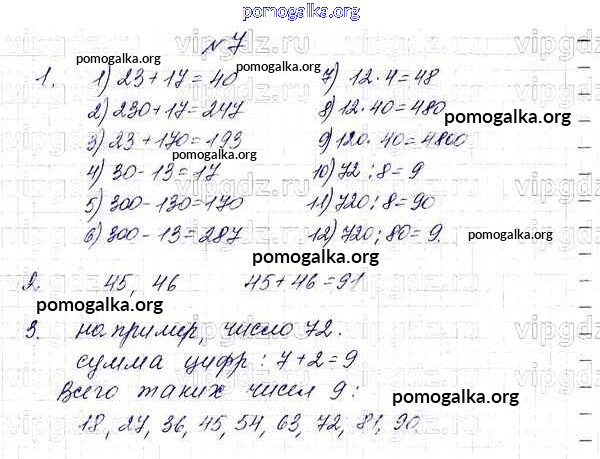 pomogalka.org
№ 7
1. 1) 23 + 17 = 40 7) 12 · 4 = 48
2) 230 + 17 = 247 8) 12 · 40 = 480
3) 23 + 170 = 193 9) 120 · 40 = 4800
4) 30 - 13 = 17 10) 72 : 8 = 9
5) 300 - 130 = 170 11) 720 : 8 = 90
6) 300 - 13 = 287 12) 720 : 80 = 9.
2. 45, 46 45 + 46 = 91
3. например, число 72.
сумма цифр: 7 + 2 = 9
Всего таких чисел 9:
18, 27, 36, 45, 54, 63, 72, 81, 90
pomogalka.org
pomogalka.org
pomogalka.org
pomogalka.org
pomogalka.org
pomogalka.org
pomogalka.org
pomogalka.org
pomogalka.org
vipgdz.ru